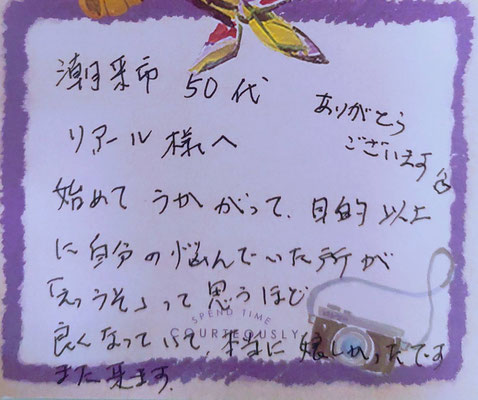 潮来市 50代
ありがとう
ございます
リアール様へ
始めてうかがって、目的以上
に自分の悩んでいた所が
「えっうそ」って思うほど
SPEND TIME
COURTEOUSLY
良くなっていて、本当に嬉しかったです
また来ます。